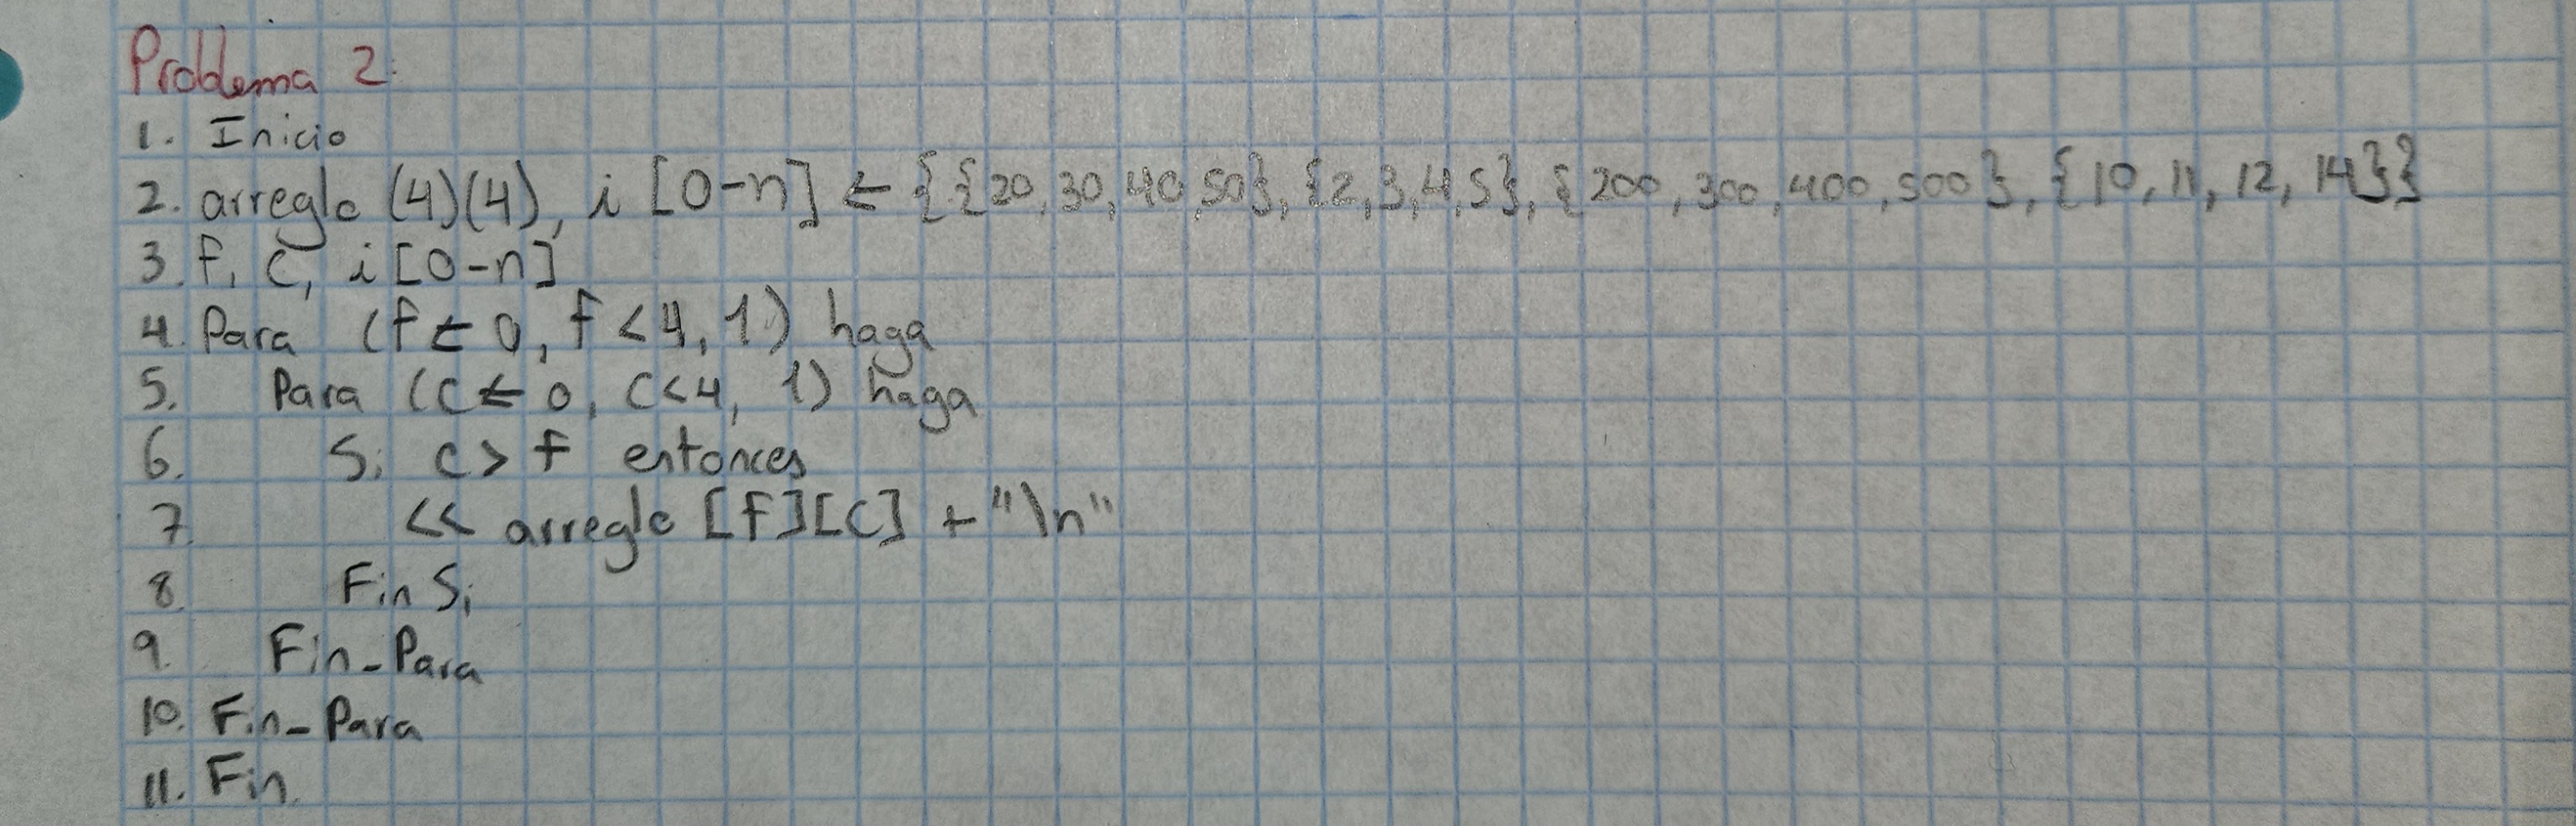 Problema 2:
1. Inicio
2. arreglo (4)(4), i [0-n] ← {{20,30,40,50},{2,3,4,5},{200,300,400,500},{10,11,12,14}}
3. f, c, i [0-n]
4. Para (f ← 0, f < 4, 1) haga
5. Para (c ← 0, c < 4, 1) haga
6. Si c > f entonces
7. << arreglo [f][c] + "\n"
8. Fin Si
9. Fin-Para
10. Fin-Para
11. Fin